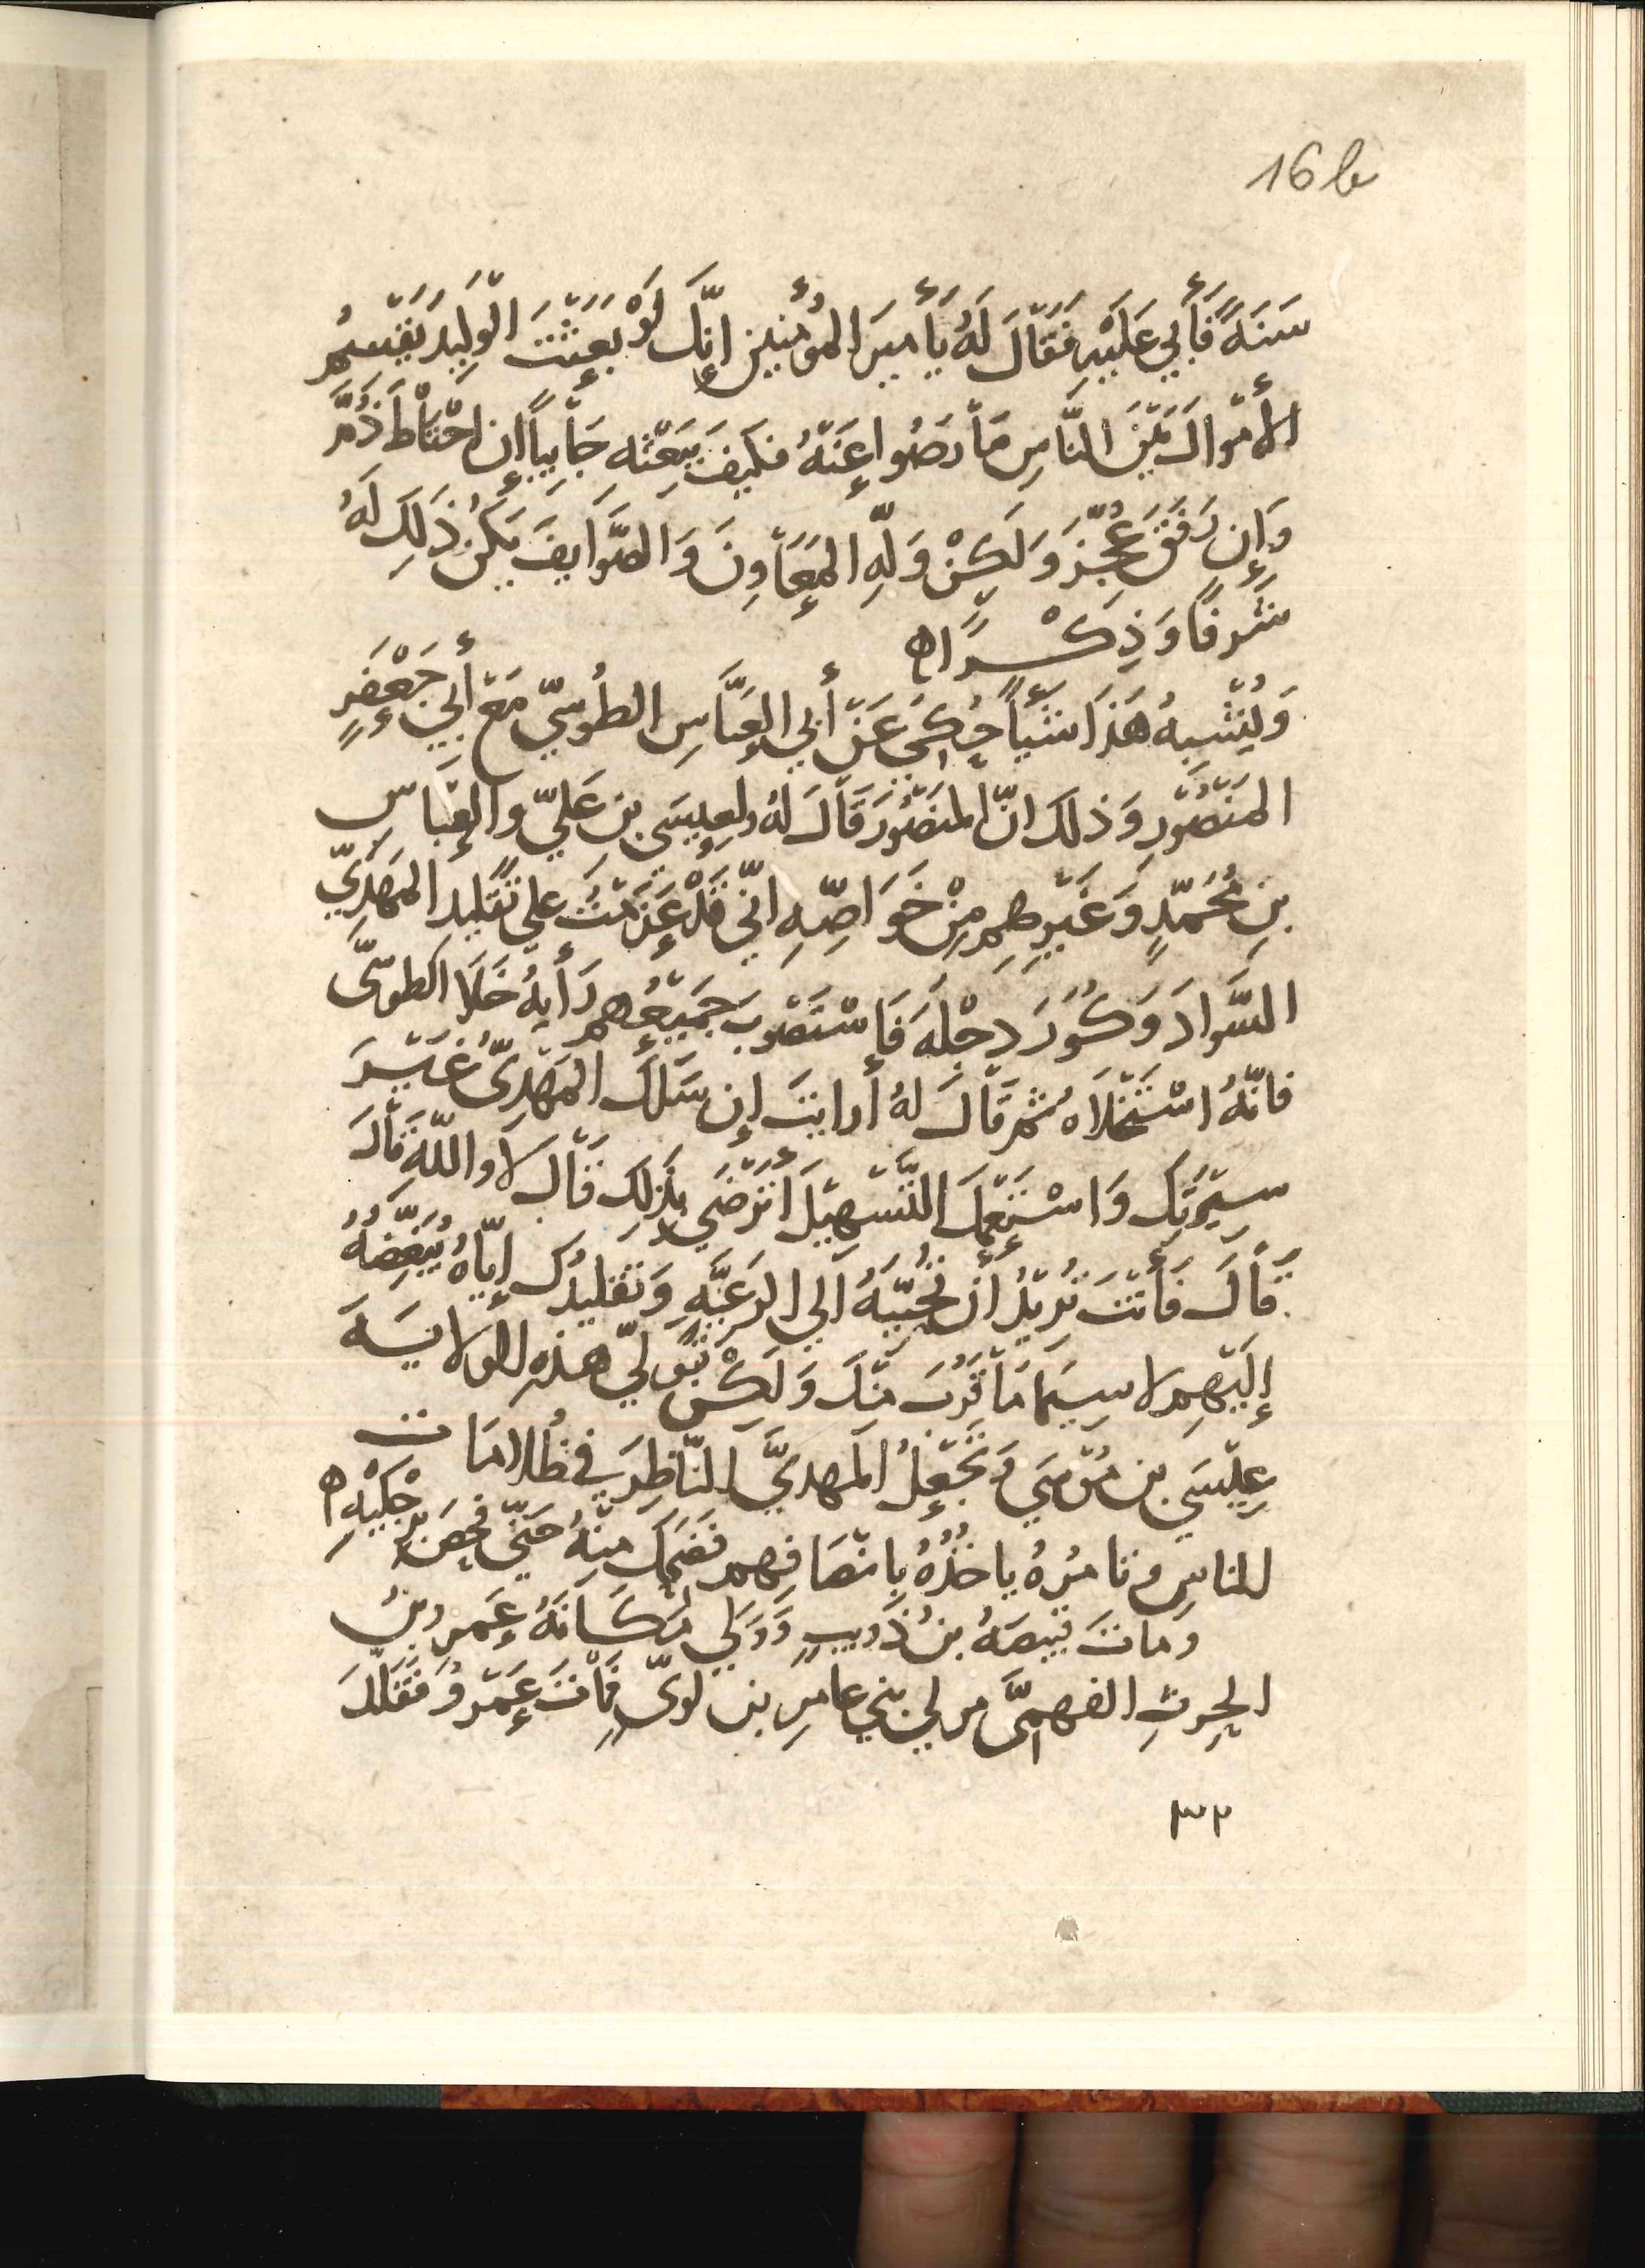 16 b
سَنَةً فَأَبَى عَلَيْهِ فَقَالَ لَهُ يَأميرَ المُؤمِنِينَ إنَّكَ لَوْ بَعَثْتَ الْوَلِيدَ يَقْسِمُ
الأمْوالَ بَيْنَ النَّاسِ مَا رَضُوا عَنْهُ فكَيفَ يَبْعَثهِ جَابِيًا إن احْتَاطَ ذُمَّ
وَإن رَفَقَ عُجِّزَ وَلَكِنْ وَلِّهِ المَعَاوِنَ وَالصَّوَايفَ يَكُنْ ذَلِكَ لَهُ
شَرفًا وَذِكْرًا ه
وَيُشْبِهُ هَذَا شَيْأً حُكِيَ عَنْ أبي العَبَّاسِ الطُوسِيّ مَعَ أَبِي جَعْفَرٍ
المَنْصُورِ وَذلكَ انّ المنصُورَ قَالَ لهُ ولعِيسَى بن عَليّ والعَبَّاسِ
بنِ مُحَمّدٍ وَغَيْرِهِمر مِنْ خَوَاصِّهِ انّي قَدْ عَزَمْتُ علي تَقليدِ المَهْدِيّ
السَّوادَ وَكُوَرَ دِجْلَهَ فَإِسْتَصْوَبَ جَمِيعُهمر رَأيهُ خَلَا الطوسيّ
فانّهُ اسْتَخْلَاهُ ثمر قَالَ لهُ أرايتَ إن سَلَكَ المَهْدِيّ غَيْرَ
سِيْرَتِكَ وَاسْتَعْمَلَ التَّسْهِيْلَ أَتَرْضَي بِذَلِكَ قَالَ لَا واللّهِ قَالَ
قَالَ فَأنْتَ تُرِيْدُ أَن تُحَبِّبَهُ الي الرَعِيَّهِ وَتقليدُكَ إيّاهُ يُبَغِّضُهُ
إلَيْهِمر لا سِيَمَا مَا قَرُبَ مِنْكَ وَلَكِنْ تُوَلِّي هذهِ الولَايَهَ
عِيْسَي بن مُوْسَي وَتَجْعَلُ المَهديَّ النّاظِرَ في ظُلَامَاتِ
للناسِ وتامُرُهُ ياخُذُهُ بِانْصَافِهمر فَضَحِكَ مِنْهُ حَتّي فَحَصَ برِجْلَيْهِ ه
وماتَ قبيصَهُ بنُ ذُويبٍ وَوَلي مَكَانَهُ عَمرو بنُ
الحرثِ الفهميّ مولي بني عامرِ بن لويّ فَمَاتَ عَمْرو فَقَلّدَ
٣٢